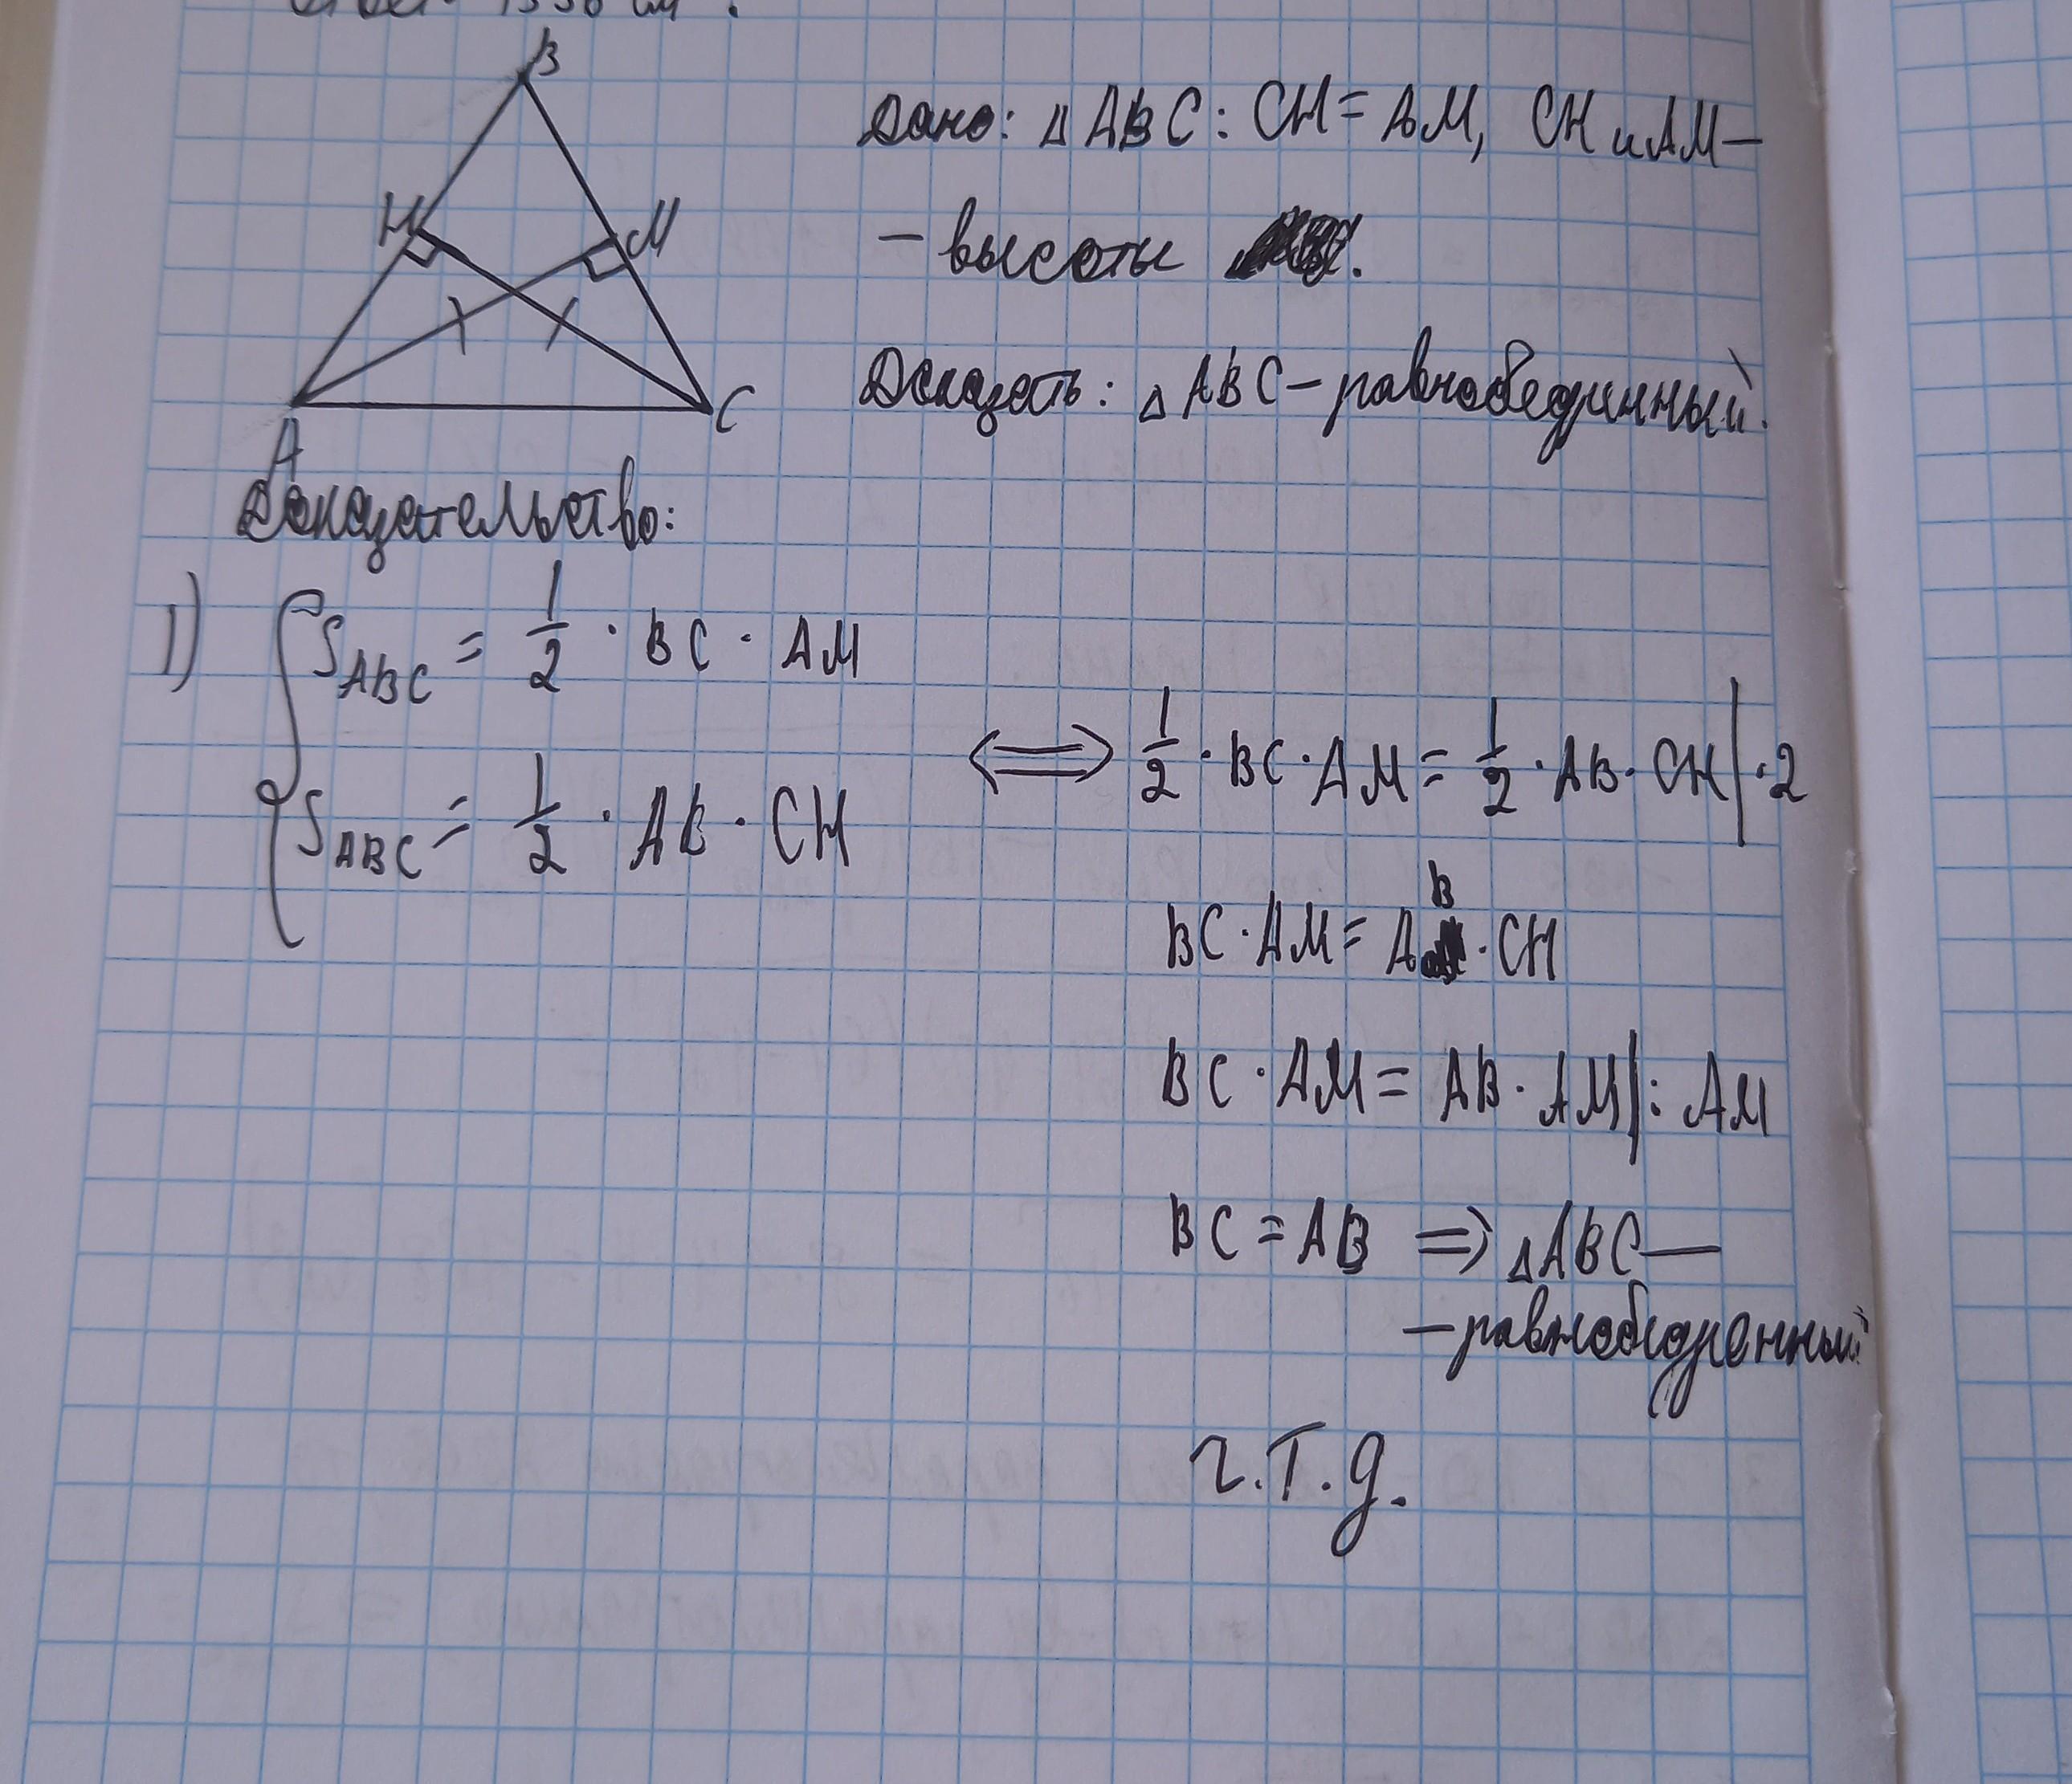 B
Дано: △ABC: CH = AM, CH и AM —
H
M
— высоты
Доказать: △ABC — равнобедринный.
A
C
Доказательство:
1) { S_ABC = 1/2 · BC · AM
S_ABC = 1/2 · AB · CH
⟺ 1/2 · BC · AM = 1/2 · AB · CH | · 2
BC · AM = AB · CH
BC · AM = AB · AM | : AM
BC = AB ⇒ △ABC —
— равнобедренный
ч.т.д.